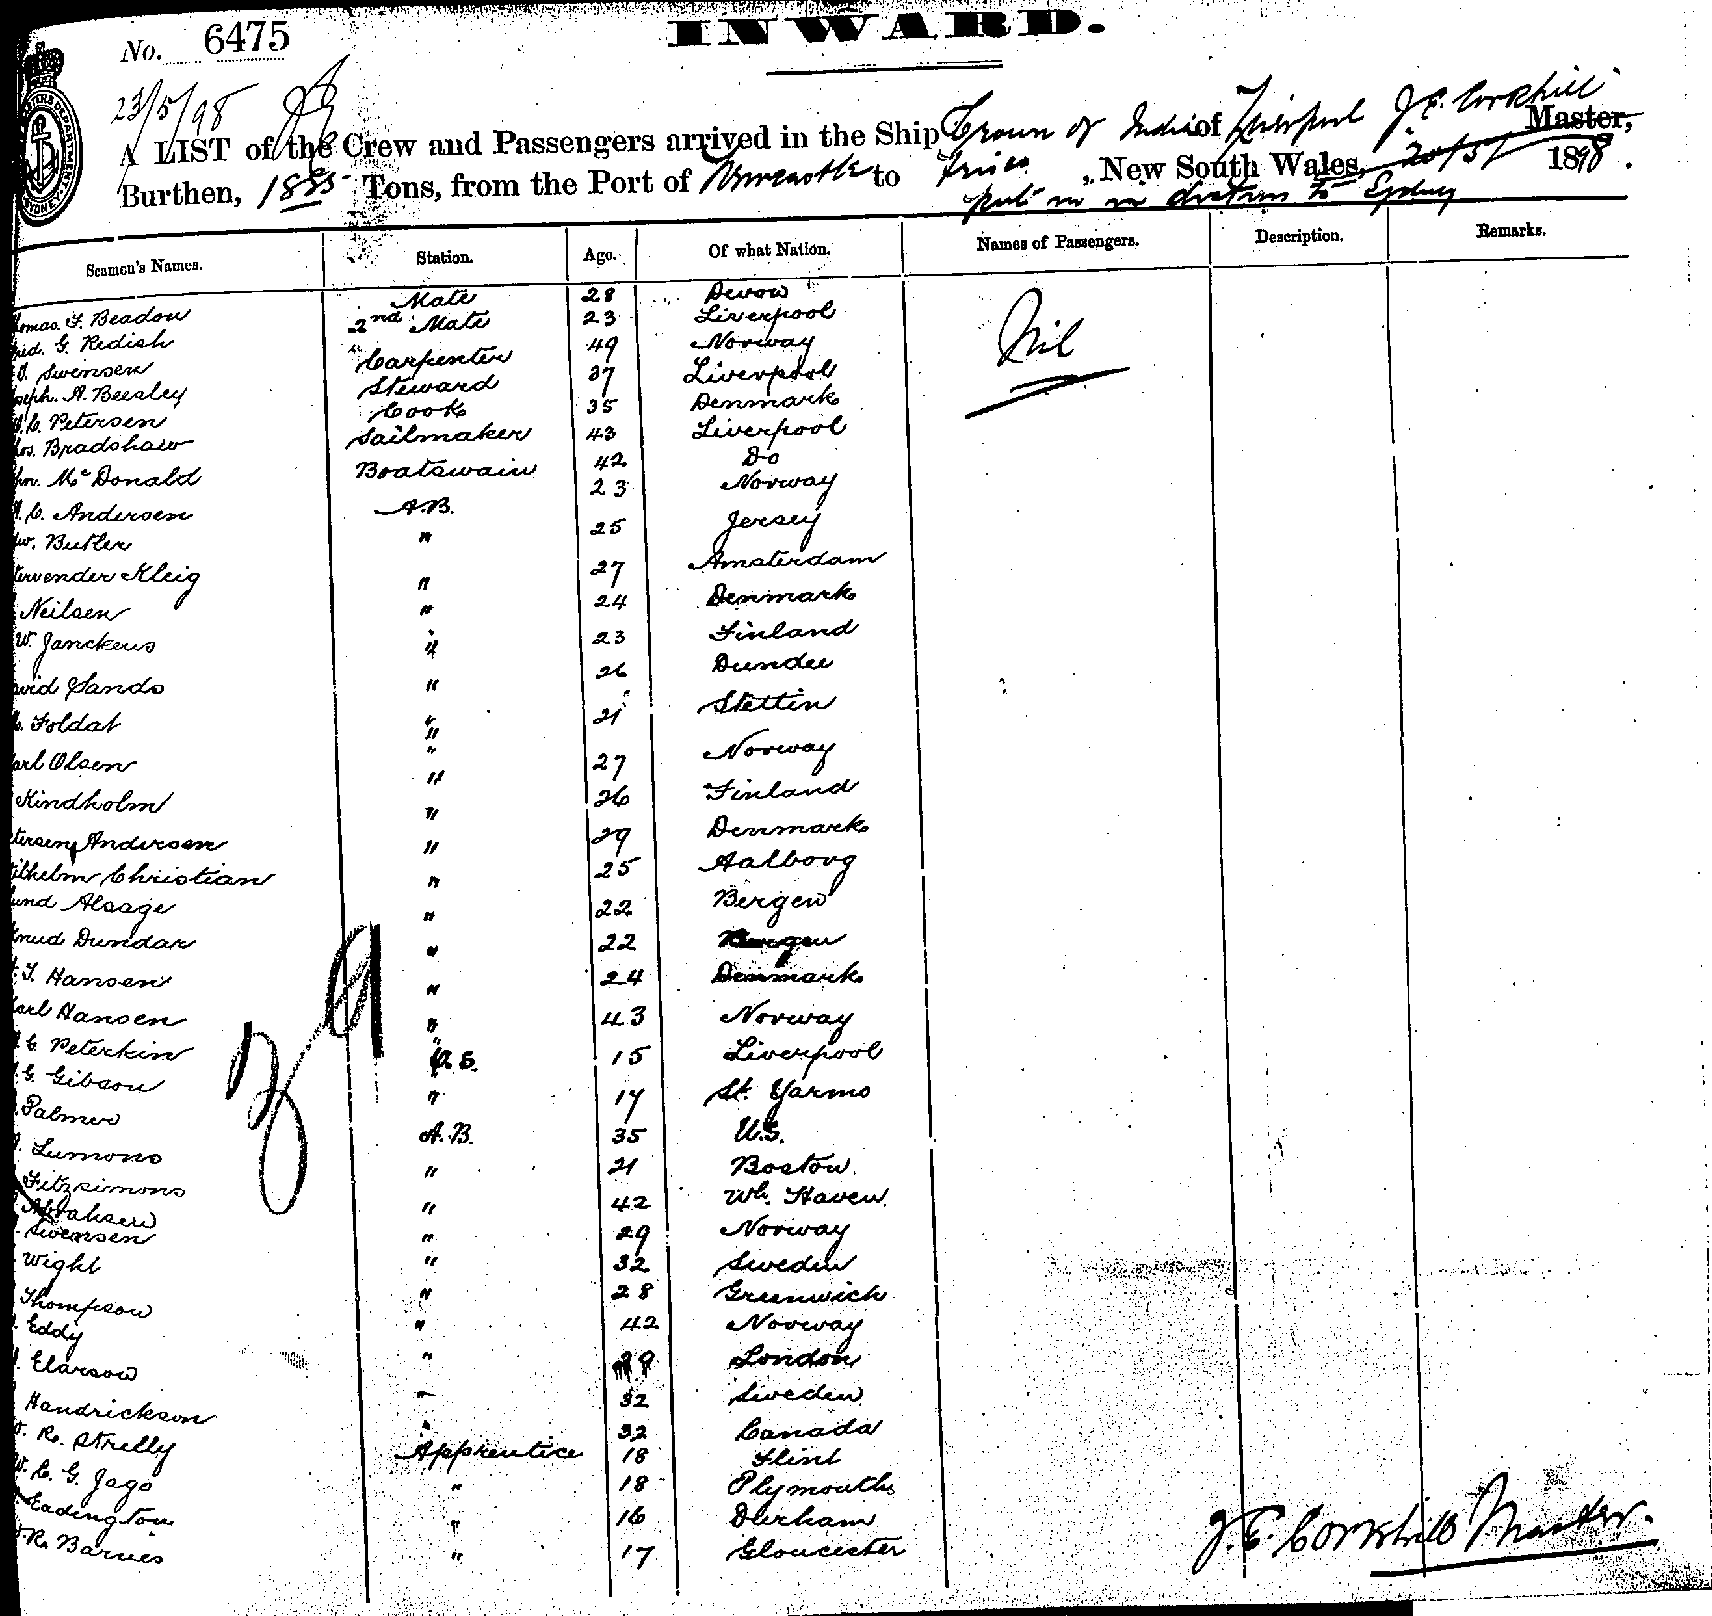 INWARD.
No. 6475
23/5/98
A LIST of the Crew and Passengers arrived in the Ship Crown of India of Liverpool J. E. Corkhill Master,
Burthen, 1885 Tons, from the Port of Newcastle to Frisco, New South Wales, 20/5/ 1898.
put in in distress to Sydney
Seamen's Names. Station. Age. Of what Nation. Names of Passengers. Description. Remarks.
homas. F. Beadon Mate 28 Devon Nil
red. G. Redish 2nd Mate 23 Liverpool
Swensen Carpenter 49 Norway
oseph. A. Beesley Steward 37 Liverpool
C. Petersen Cook 35 Denmark
os. Bradshaw Sailmaker 43 Liverpool
hn. McDonald Boatswain 42 Do
C. Andersen A.B. 23 Norway
w. Butler " 25 Jersey
tervender Kleig " 27 Amsterdam
Neilsen " 24 Denmark
W. Janckeus " 23 Finland
avid Sands " 26 Dundee
Foldat " 21 Stettin
arl Olsen " 27 Norway
Kindholm " 26 Finland
etersen Andersen " 29 Denmark
ilhelm Christian " 25 Aalborg
und Alsage " 22 Bergen
nud Dundar " 22 Bergen
T. Hansen " 24 Denmark
arl Hansen " 43 Norway
G. Peterkin O.S. 15 Liverpool
G. Gibson " 17 St. Yarmo
Palmer A.B. 35 U.S.
Lumons " 21 Boston
Fitzsimons " 42 Wh. Haven
Abrahsen " 29 Norway
Swensen " 32 Sweden
Wight " 28 Greenwich
Thompson " 42 Norway
Eddy " 29 London
Elarson " 32 Sweden
Handrickson " 32 Canada
R. Strelly Apprentice 18 Flint
W. C. G. Jago " 18 Plymouth
Eadington " 16 Durham
R. Barnes " 17 Gloucester
39
J. E. Corkhill Master.